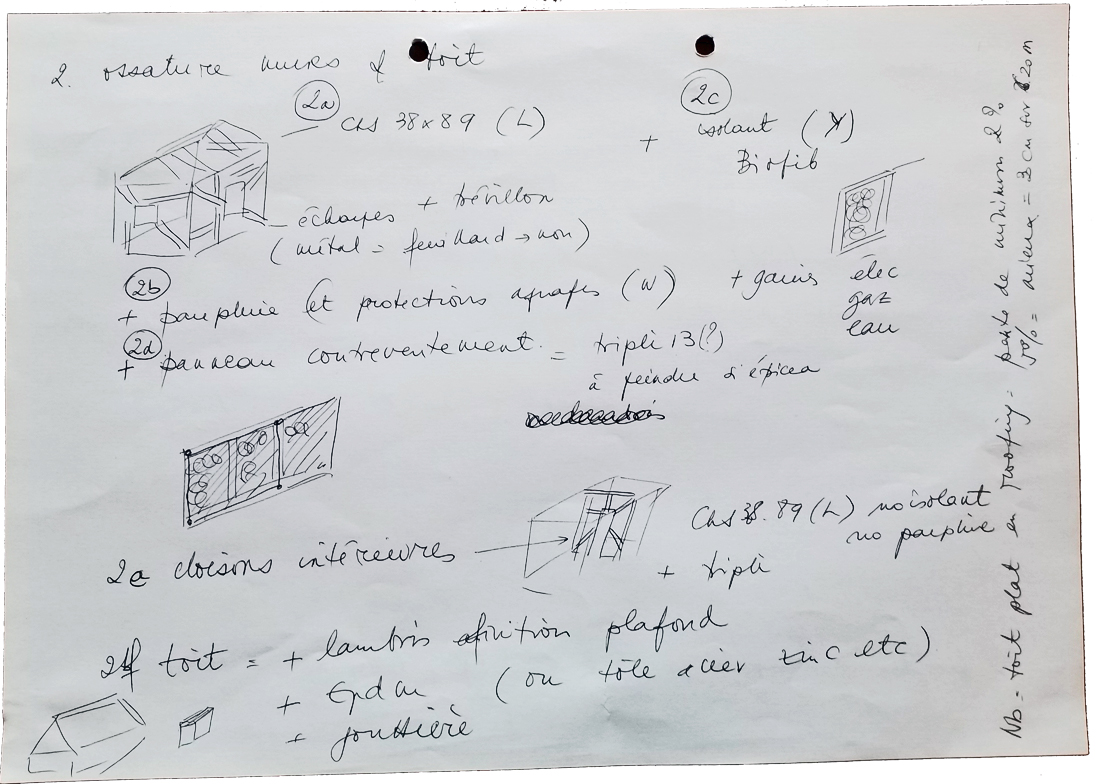 2. ossature murs & toit
2a
CLS 38x89 (L)
2c
+ isolant (X)
Biofib
échapes + trévillon
(métal = feuillard → non)
2b
+ parepluie (et protections agrafes (W)
+ gaines élec
gaz
eau
2d
+ panneau contreventement = tripli 13(?)
à peindre si épicea
2e cloisons intérieures
CLS 38.89 (L) no isolant
no parepluie
+ tripli
2f toit = + lambris finition plafond
+ Epdm (ou tôle acier zinc etc)
+ gouttière
Nb = toit plat en roofing = pente de minimum 2%